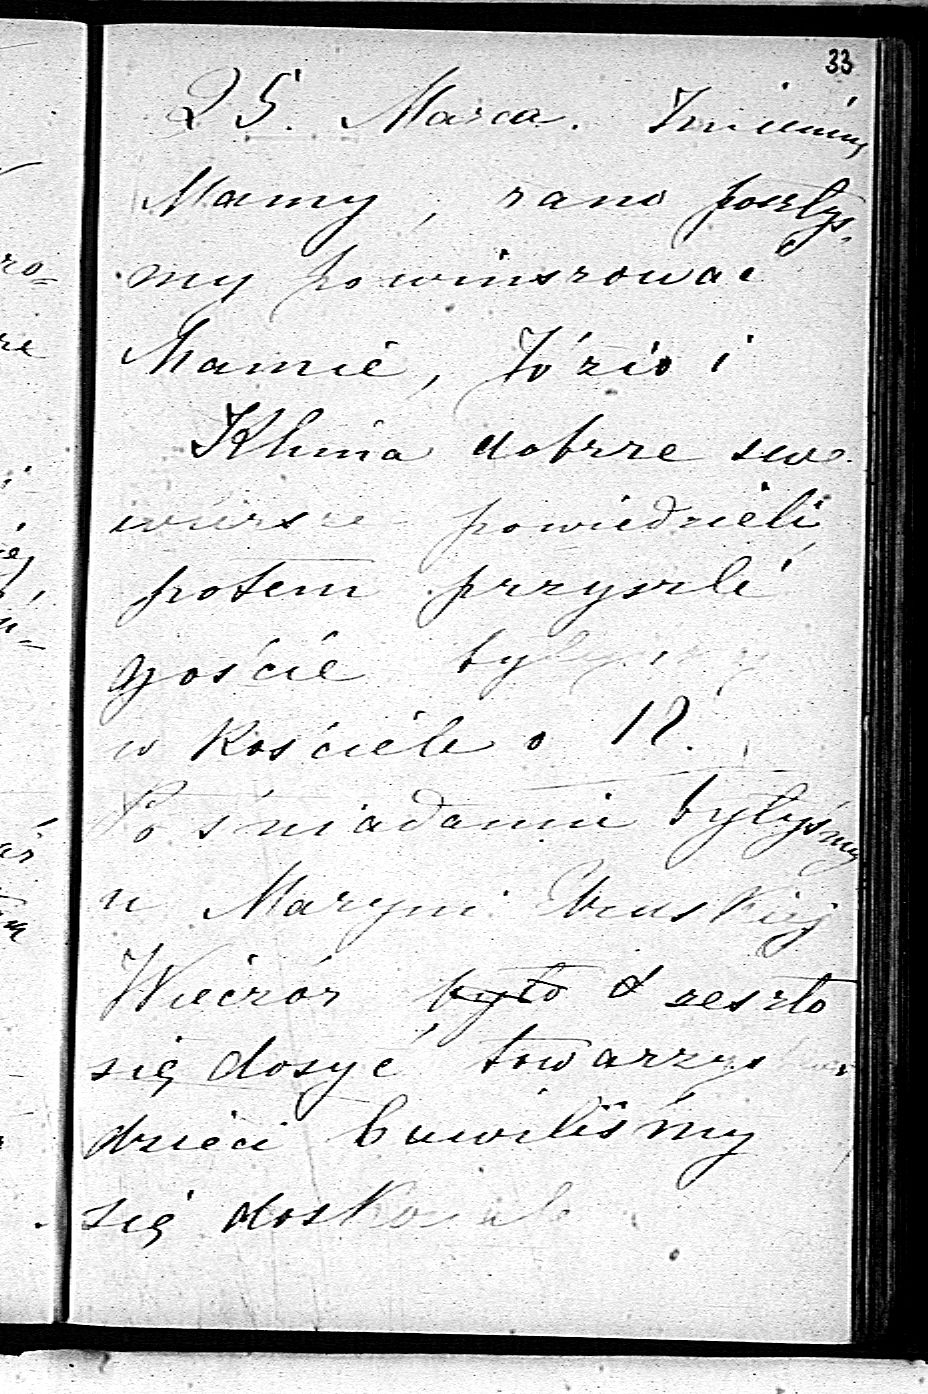 33
25. Marca. Imieniny
Mamy, rano poszłyś-
my powinszować
Mamie, Józio i
Klinia dobrze swe
wiersze powiedzieli,
potem przyszli
goście byłyśmy
w Kościele o 12.
Po śniadaniu byłyśmy
u Maryni
Wieczór było zeszło
się dosyć towarzystwa
dzieci bawiliśmy
się doskonale